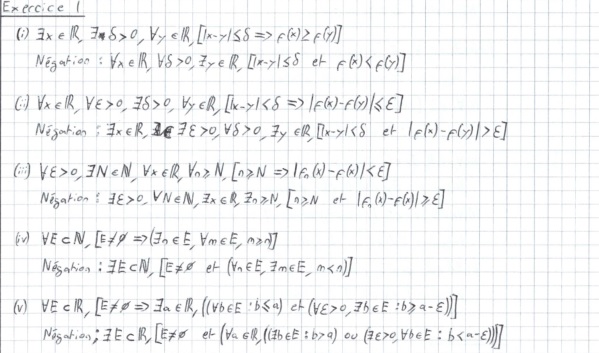 Exercice 1
(i) ∃x∈ℝ, ∃δ>0, ∀y∈ℝ, [|x-y|≤δ => f(x)≥f(y)]
Négation : ∀x∈ℝ, ∀δ>0, ∃y∈ℝ, [|x-y|≤δ et f(x)<f(y)]
(ii) ∀x∈ℝ, ∀ε>0, ∃δ>0, ∀y∈ℝ, [|x-y|<δ => |f(x)-f(y)|≤ε]
Négation : ∃x∈ℝ, ∃ε>0, ∀δ>0, ∃y∈ℝ [|x-y|<δ et |f(x)-f(y)|>ε]
(iii) ∀ε>0, ∃N∈ℕ, ∀x∈ℝ, ∀n≥N, [n≥N => |fₙ(x)-f(x)|<ε]
Négation : ∃ε>0, ∀N∈ℕ, ∃x∈ℝ, ∃n≥N, [n≥N et |fₙ(x)-f(x)|≥ε]
(iv) ∀E⊂ℕ, [E≠∅ => (∃n∈E, ∀m∈E, m≥n)]
Négation : ∃E⊂ℕ, [E≠∅ et (∀n∈E, ∃m∈E, m<n)]
(v) ∀E⊂ℝ, [E≠∅ => ∃a∈ℝ, ((∀b∈E : b≤a) et (∀ε>0, ∃b∈E : b≥a-ε))]
Négation : ∃E⊂ℝ, [E≠∅ et (∀a∈ℝ, ((∃b∈E : b>a) ou (∃ε>0, ∀b∈E : b<a-ε)))]